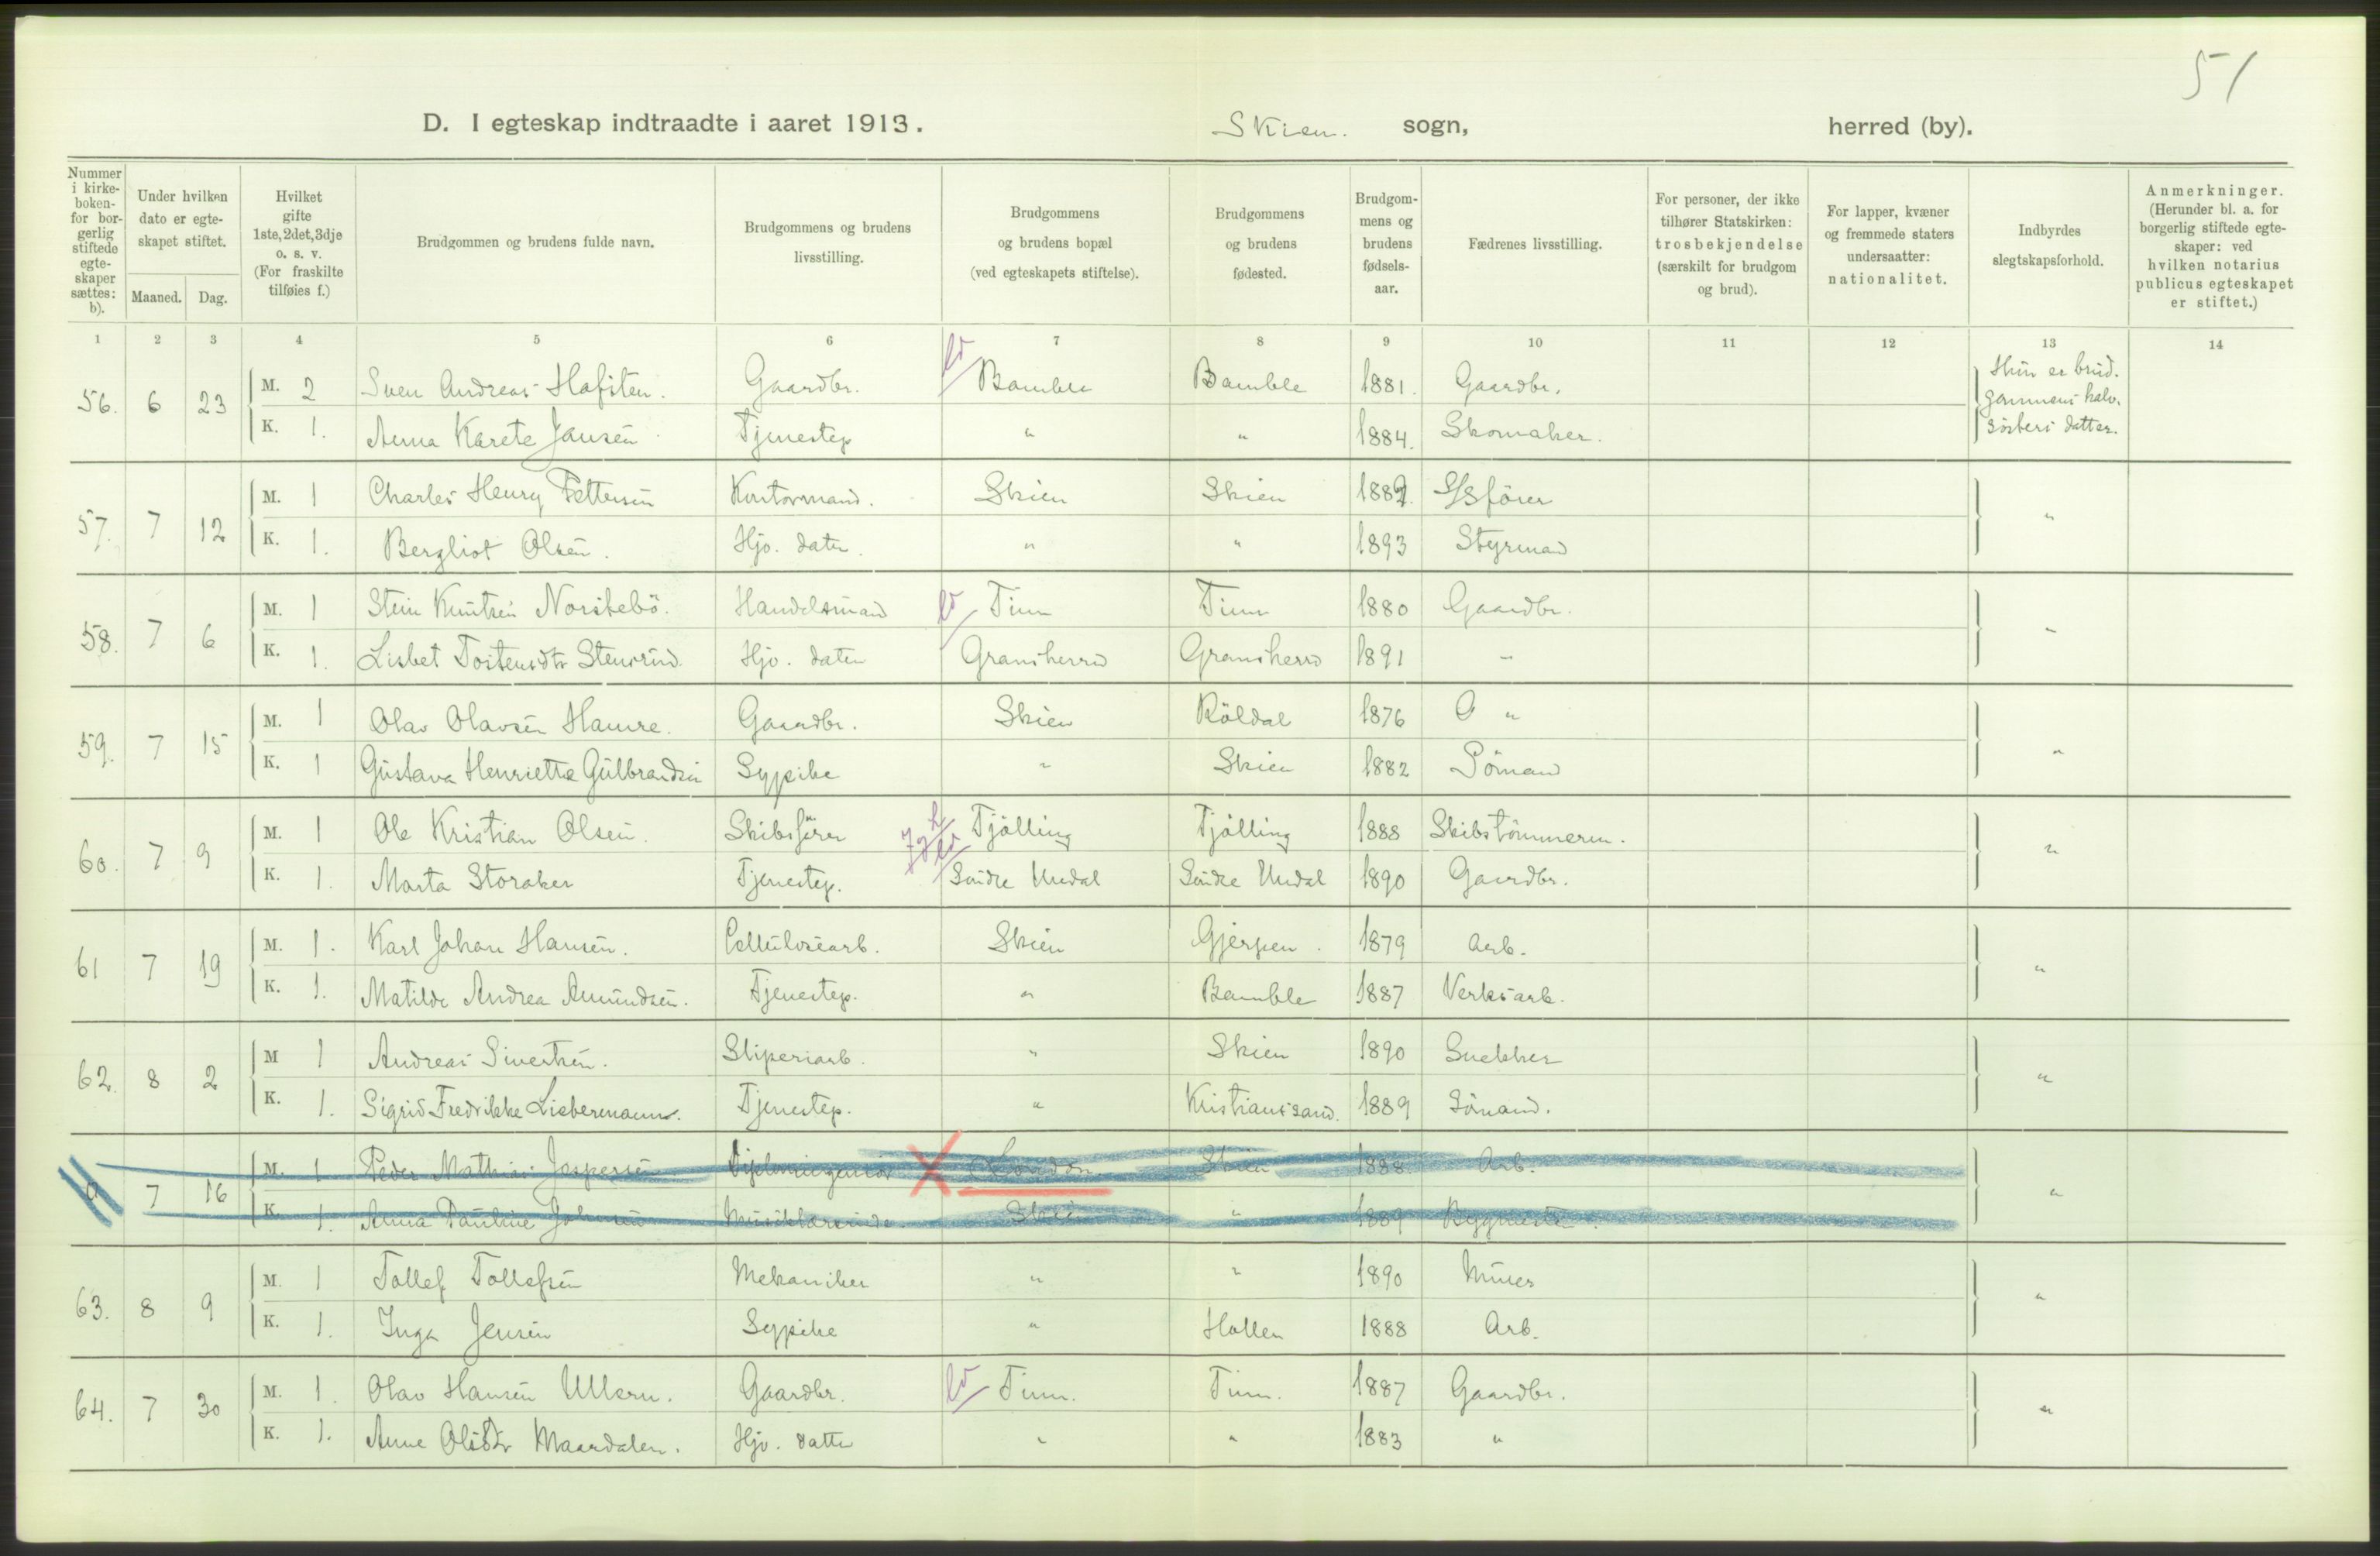 51
D. I egteskap indtraadte i aaret 1913. Skien. sogn, herred (by).
Nummer i kirkeboken- for borgerlig stiftede egteskaper sættes: b).
Under hvilken dato er egteskapet stiftet.
Maaned. Dag.
Hvilket gifte 1ste, 2det, 3dje o. s. v. (For fraskilte tilføies f.)
Brudgommen og brudens fulde navn.
Brudgommens og brudens livsstilling.
Brudgommens og brudens bopæl (ved egteskapets stiftelse).
Brudgommens og brudens fødested.
Brudgommens og brudens fødselsaar.
Fædrenes livsstilling.
For personer, der ikke tilhører Statskirken: trosbekjendelse (særskilt for brudgom og brud).
For lapper, kvæner og fremmede staters undersaatter: nationalitet.
Indbyrdes slegtskapsforhold.
Anmerkninger. (Herunder bl. a. for borgerlig stiftede egteskaper: ved hvilken notarius publicus egteskapet er stiftet.)
1 2 3 4 5 6 7 8 9 10 11 12 13 14
56. 6 23 M. 2 Sven Andreas Hafsten. Gaardbr. Bamble Bamble 1881. Gaardbr. Hun er brudgommens halvsösters datter.
K. 1. Anna Karete Jansen Tjenestep " " 1884. Skomaker.
57. 7 12 M. 1 Charles Henry Pettersen Kontormand. Skien Skien 1882. S/Sförer "
K. 1. Bergliot Olsen. Hjv. dater. " " 1893 Styrmand
58. 7 6 M. 1 Stein Knutsen Norstebö. Handelsmand Tinn Tinn 1880 Gaardbr. "
K. 1. Lisbet Tostensdtr Stensrud. Hjv. dater Gransherred Gransherrd 1891 "
59. 7 15 M. 1 Olav Olavsen Hamre. Gaardbr. Skien Röldal 1876 "
K. 1 Gustava Henriette Gulbrandsen Sypike " Skien 1882 Sömand
60. 7 9 M. 1 Ole Kristian Olsen. Skibsförer Tjölling Tjölling 1888 Skibstömmerm. "
K. 1. Marta Storaker Tjenestep. Söndre Undal Söndre Undal 1890 Gaardbr.
61 7 19 M. 1. Karl Johan Hansen. Cellulosearb. Skien Gjerpen. 1879 Arb. "
K. 1. Matilde Andrea Amundsen. Tjenestep. " Bamble 1887 Verksarb.
62. 8 2 M 1 Andreas Sivertsen. Sliperiarb. " Skien 1890 Snekker "
K. 1. Sigrid Fredrikke Liebermann. Tjenestep. " Kristianssand. 1889 Sömand.
a 7 16 M. 1 Peder Mathias Jespersen Diplomingeniör London Skien 1888 Arb. "
K. 1. Anna Pauline Johnsen Musiklærerinde. Skien " 1889 Bygmester.
63. 8 9 M. 1 Tollef Tollefsen Mekaniker " " 1890 Murer "
K. 1. Inga Jensen Sypike " Hollen 1888 Arb.
64. 7 30 M. 1. Olav Hansen Ullern. Gaardbr. Tinn. Tinn. 1887 Gaardbr. "
K. 1. Anne Olsdtr Maardalen. Hjv. datter " " 1883 "